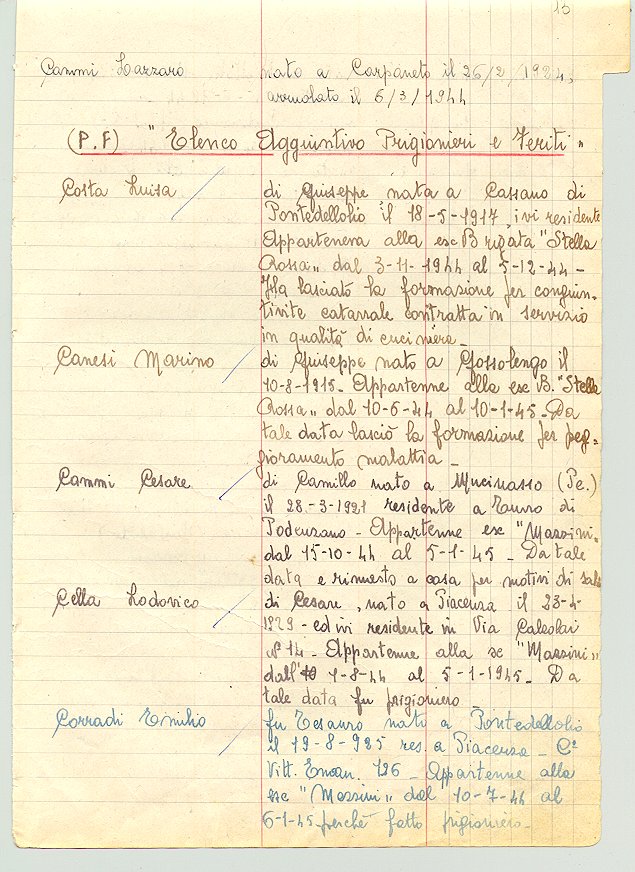 15
Cammi Lazzaro nato a Carpaneto il 26/2/1924,
arruolato il 6/3/1944
(P.F) "Elenco Aggiuntivo Prigionieri e Feriti"
Costa Luisa di Giuseppe nata a Cassano di
Pontedellolio il 18-5-1917, ivi residente
Appartenera alla esc Brigata "Stella
Rossa" dal 3-11-1944 al 5-12-44-
Ha lasciato la formazione per congiun-
tivite catarrale contratta in servizio
in qualità di cuciniera-
Canesi Marino di Giuseppe nato a Gossolengo il
10-8-1915- Appartenne alla ex B. "Stella
Rossa" dal 10-6-44 al 10-1-45- Da
tale data lasciò la formazione per peg-
gioramento malattia-
Cammi Cesare di Camillo nato a Mucinasso (Pc.)
il 28-3-1921 residente a Turro di
Podenzano- Appartenne esc "Mazzini"
dal 15-10-44 al 5-1-45- Da tale
data e rimasto a casa per motivi di
Cella Lodovico di Cesare, nato a Piacenza il 23-4-
1929- ed ivi residente in Via
N° 14- Appartenne alla se "Mazzini"
dall' 1-8-44 al 5-1-1945- Da
tale data fu prigioniero-
Corradi Emilio fu Tesauro nato a Pontedellolio
il 19-8-925 res. a Piacenza- C°
Vitt. Eman. 126- Appartenne alla
esc "Mazzini" dal 10-7-44 al
6-1-45 perchè fatto prigioniero-